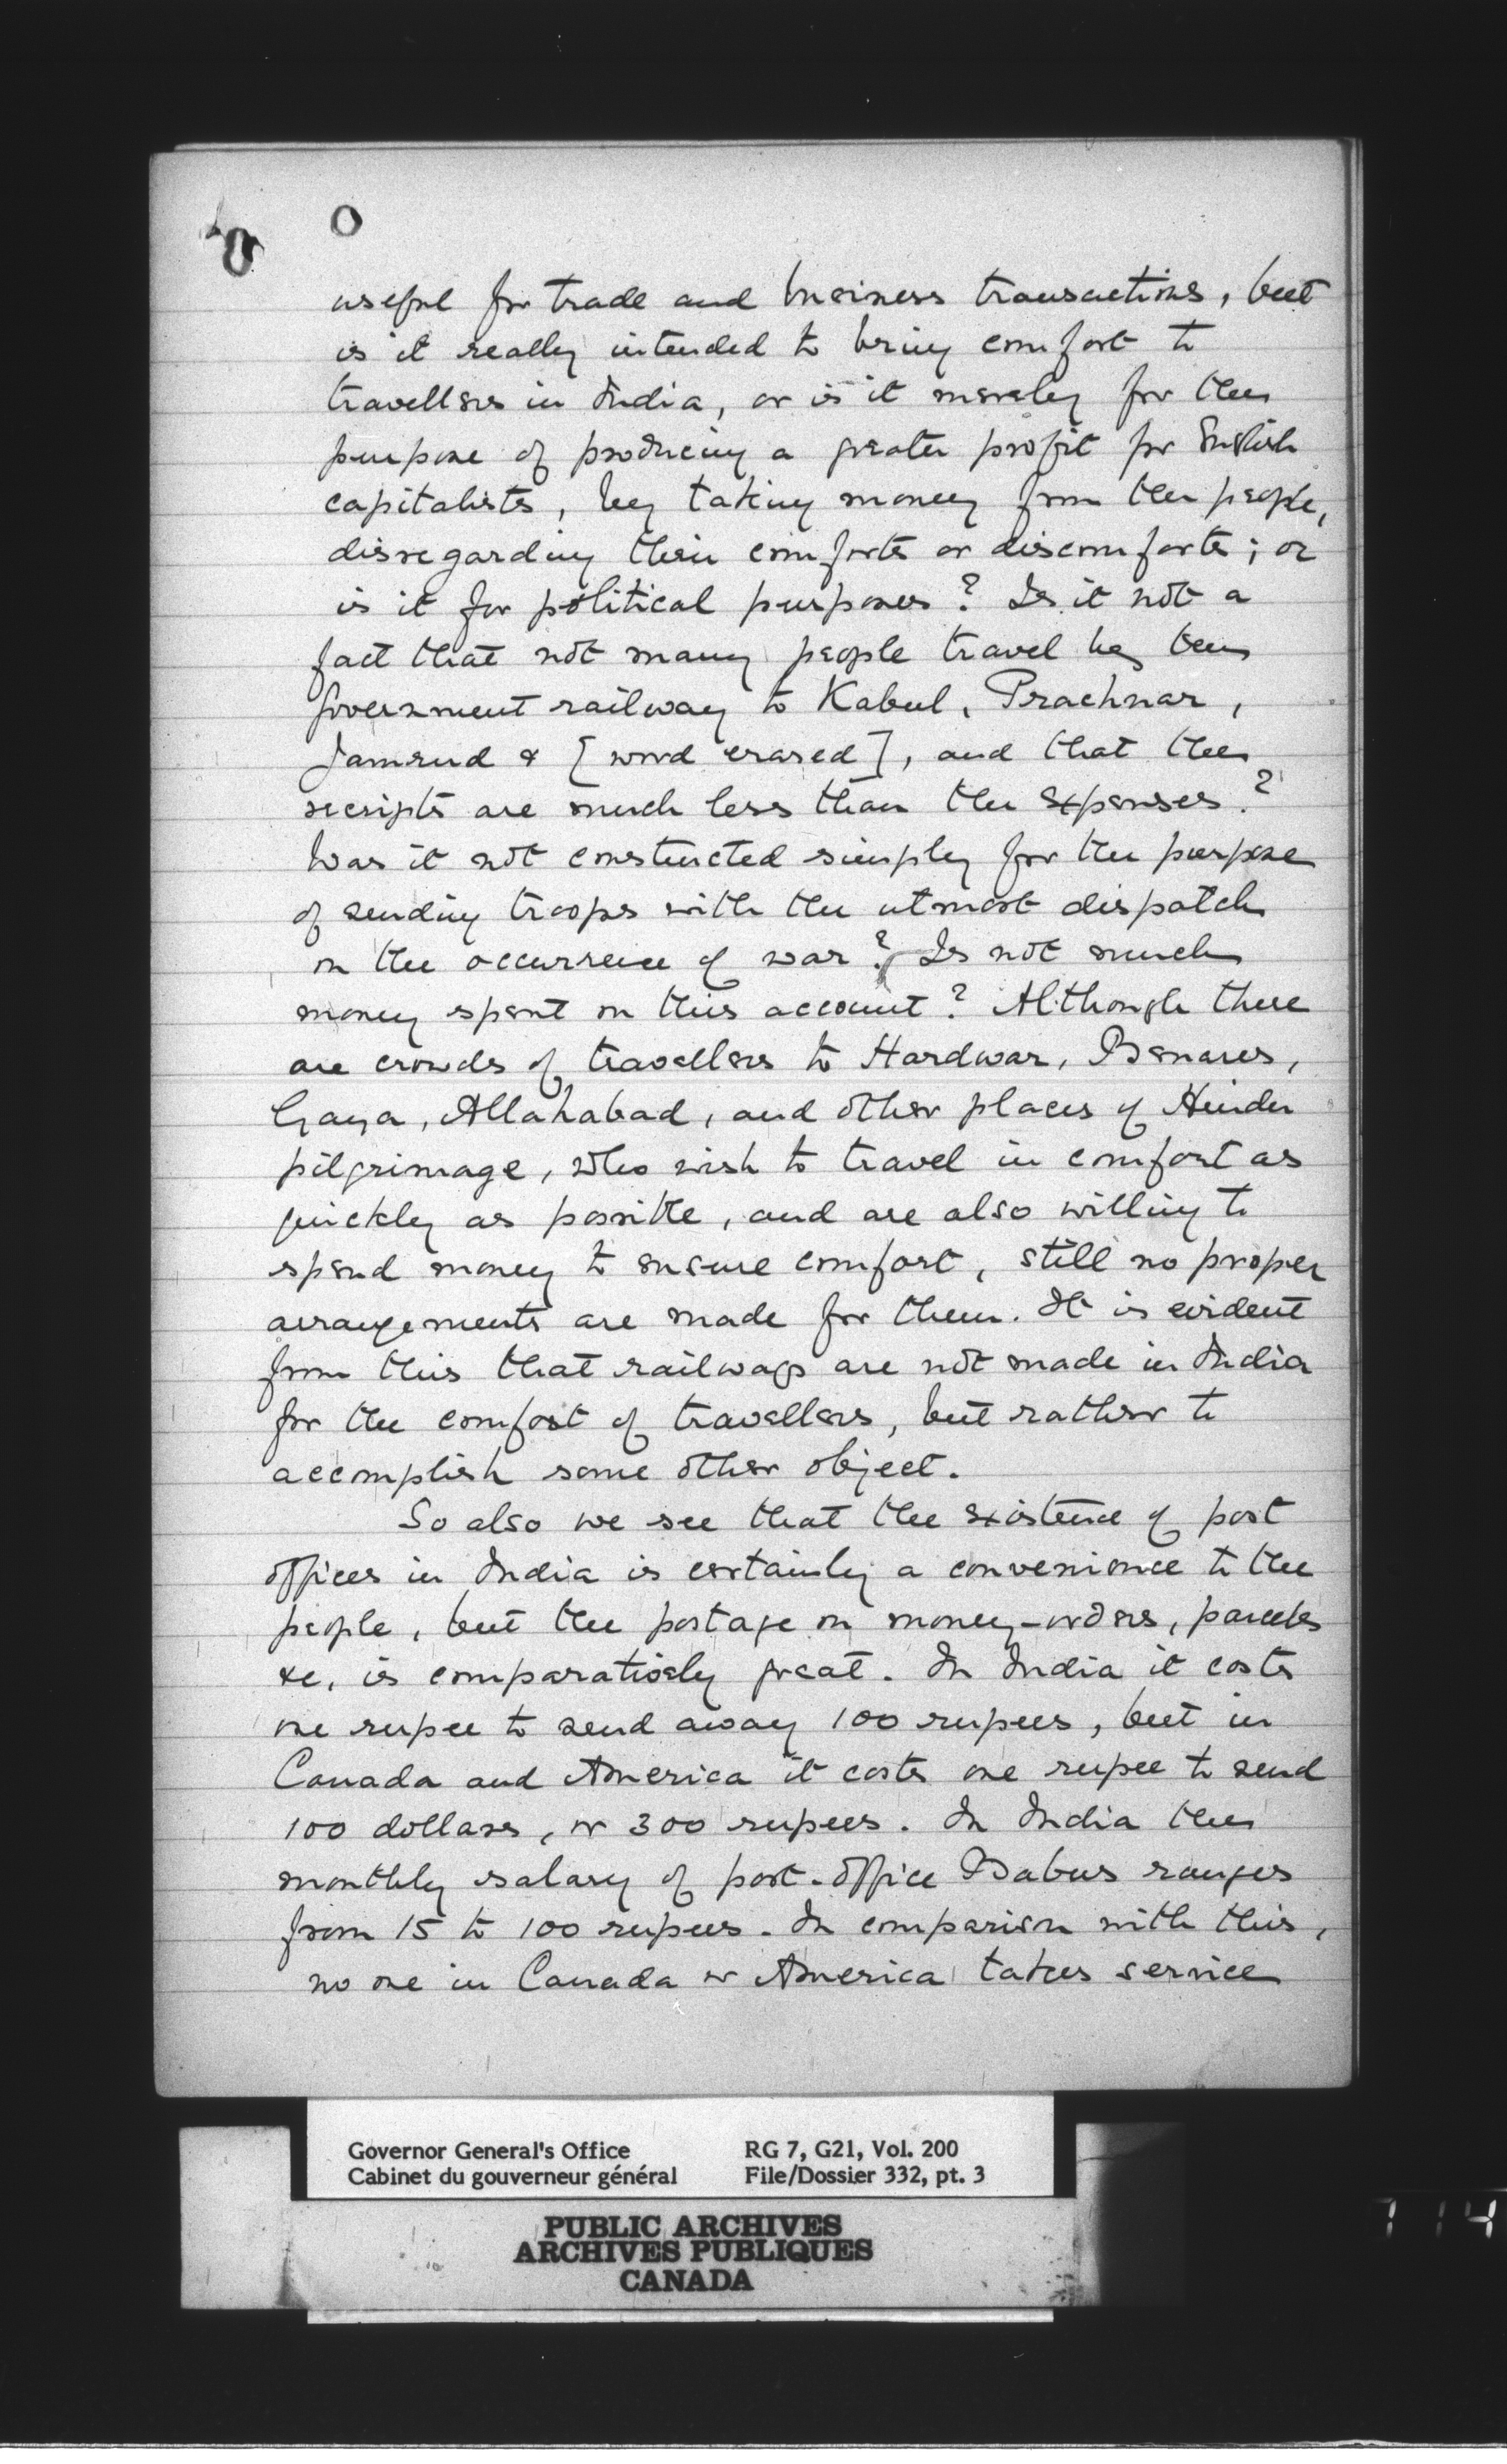 useful for trade and business transactions, but
is it really intended to bring comfort to
travellers in India, or is it merely for the
purpose of producing a greater profit for English
capitalists, by taking money from the people,
disregarding their comforts or discomforts; or
is it for political purposes? Is it not a
fact that not many people travel by the
Government railway to Kabul, Prachnar,
Jamrud & [word erased], and that the
receipts are much less than the expenses?
Was it not constructed simply for the purpose
of sending troops with the utmost dispatch
on the occurrence of war? Is not much
money spent on this account? Although there
are crowds of travellers to Hardwar, Benares,
Gaya, Allahabad, and other places of Hindu
pilgrimage, who wish to travel in comfort as
quickly as possible, and are also willing to
spend money to ensure comfort, still no proper
arrangements are made for them. It is evident
from this that railways are not made in India
for the comfort of travellers, but rather to
accomplish some other object.
So also we see that the existence of post
offices in India is certainly a convenience to the
people, but the postage on money-orders, parcels
&c, is comparatively great. In India it costs
one rupee to send away 100 rupees, but in
Canada and America it costs one rupee to send
100 dollars, or 300 rupees. In India the
monthly salary of post-office Babus ranges
from 15 to 100 rupees. In comparison with this,
no one in Canada or America takes service
Governor General's Office RG 7, G21, Vol. 200
Cabinet du gouverneur général File/Dossier 332, pt. 3
PUBLIC ARCHIVES
ARCHIVES PUBLIQUES
CANADA
114